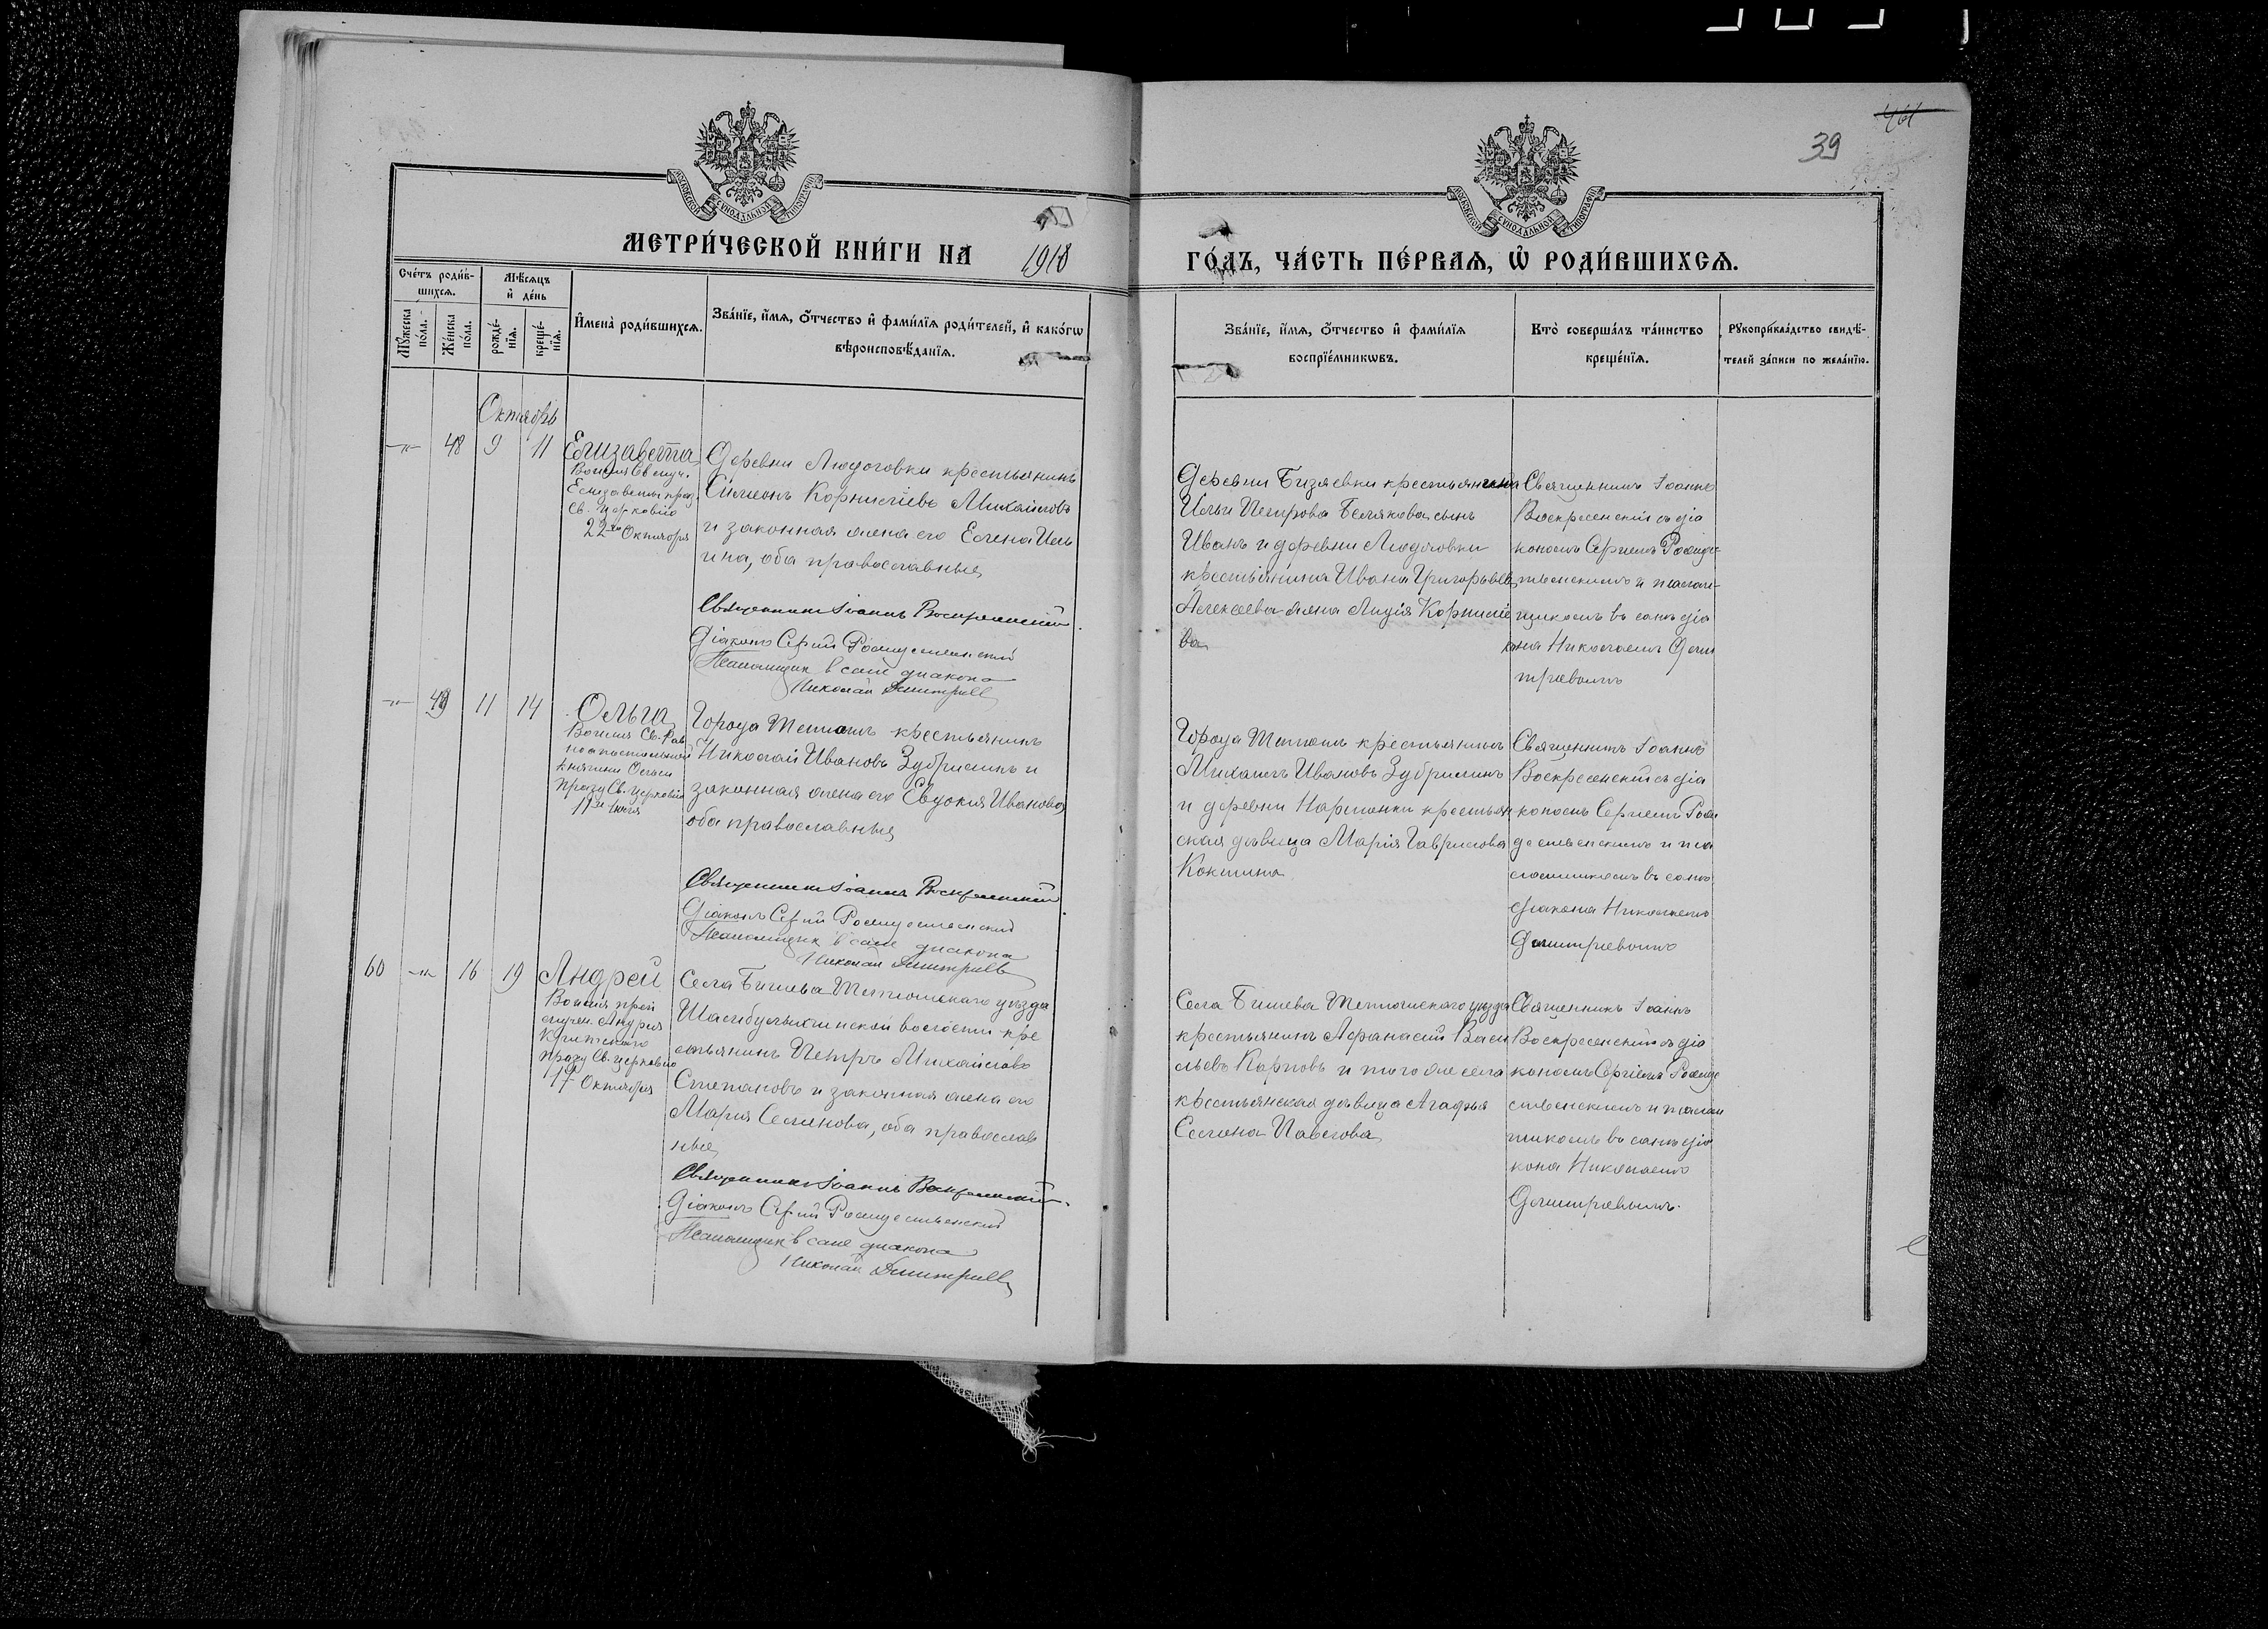 461
39
МОСКОВСКОЙ СѴНОДАЛЬНОЙ ТИПОГРАФІИ
МОСКОВСКОЙ СѴНОДАЛЬНОЙ ТИПОГРАФІИ
МЕТРИ́ЧЕСКОЙ КНИ́ГИ НА 1918
ГО́ДЪ, ЧА́СТЬ ПЕ́РВАѦ, Ѡ҆ РОДИ́ВШИХСѦ.
Сче́тъ роди́в-
шихсѧ.
Мѣ́сѧцъ
и҆ де́нь
Мꙋ́жеска
по́ла.
Же́нска
по́ла.
рожде́-
нїѧ.
креще́-
нїѧ.
И҆мена̀ роди́вшихсѧ.
Зва́нїе, и҆́мѧ, ѻ҆́тчество и҆ фами́лїѧ роди́телей, и҆ како́гѡ
вѣроисповѣ́данїѧ.
Зва́нїе, и҆́мѧ, ѻ҆́тчество и҆ фами́лїѧ
воспрїе́мникѡвъ.
Кто̀ соверша́лъ та́инство
креще́нїѧ.
Рꙋкоприкла́дство свидѣ́-
телей за́писи по жела́нїю.
Октябрь
48 9 11 Елизавета
Елизаветы праз.
Св. церковію
22го Октября
Деревни Людоговки крестьянинъ
Сѵмеонъ Корниліевъ Михайловъ
и законная жена его Елена Иль
ина, оба православные
Священникъ Іоаннъ Воскресенскій
Діаконъ Сергій Рождественскій
Псаломщик в сане диакона
Николай Димитриев
Деревни Бизяевки крестьянина
Ильи Петрова Белякова сынъ
Иванъ и деревни Людоговки
крестьянина Ивана Григорьева
Алексеева жена Лидія Корниліе
ва
Священникъ Іоаннъ
Воскресенскій съ діа
кономъ Сергіемъ Рожде-
ственскимъ и псалом-
щикомъ въ санѣ діа
кона Николаемъ Дими
тріевымъ
49 11 14 Ольга
Во имя Св. Рав
ноапостольной
княгини Ольги
празд Св. церковію
11го Іюля
Города Тетюшъ крестьянинъ
Николай Ивановъ Зубрилинъ и
законная жена его Евдокія Иванова,
оба православные
Священникъ Іоаннъ Воскресенскій
Діаконъ Сергій Рождественскій
Псаломщик в сане диакона
Николай Димитриев
Города Тетюшъ крестьянинъ
Михаилъ Ивановъ Зубрилинъ
и деревни Нармонки крестьян
ская дѣвица Марія Гаврилова
Кокшина
Священникъ Іоаннъ
Воскресенскій съ діа
кономъ Сергіемъ Рож
дественскимъ и пса
ломщикомъ въ санѣ
діакона Николаемъ
Димитріевымъ
60 16 19 Андрей
Во имя преп
мучен. Андрея
Критскаго
празд Св. церковію
17 Октября
Села Бишева Тетюшскаго уѣзда
Шамбулыхчинской волости кре
стьянинъ Петръ Михайловъ
Степановъ и законная жена его
Марія Семенова, оба православ
ные
Священникъ Іоаннъ Воскресенскій
Діаконъ Сергій Рождественскій
Псаломщик в сане диакона
Николай Димитриев
Села Бишева Тетюшскаго уѣзда
крестьянинъ Афанасій Васи
льевъ Карповъ и того же села
крестьянская дѣвица Агафья
Семена Павлова
Священникъ Іоаннъ
Воскресенскій съ діа
кономъ Сергіемъ Рожде
ственскимъ и псалом
щикомъ въ санѣ діа
кона Николаемъ
Димитріевымъ.